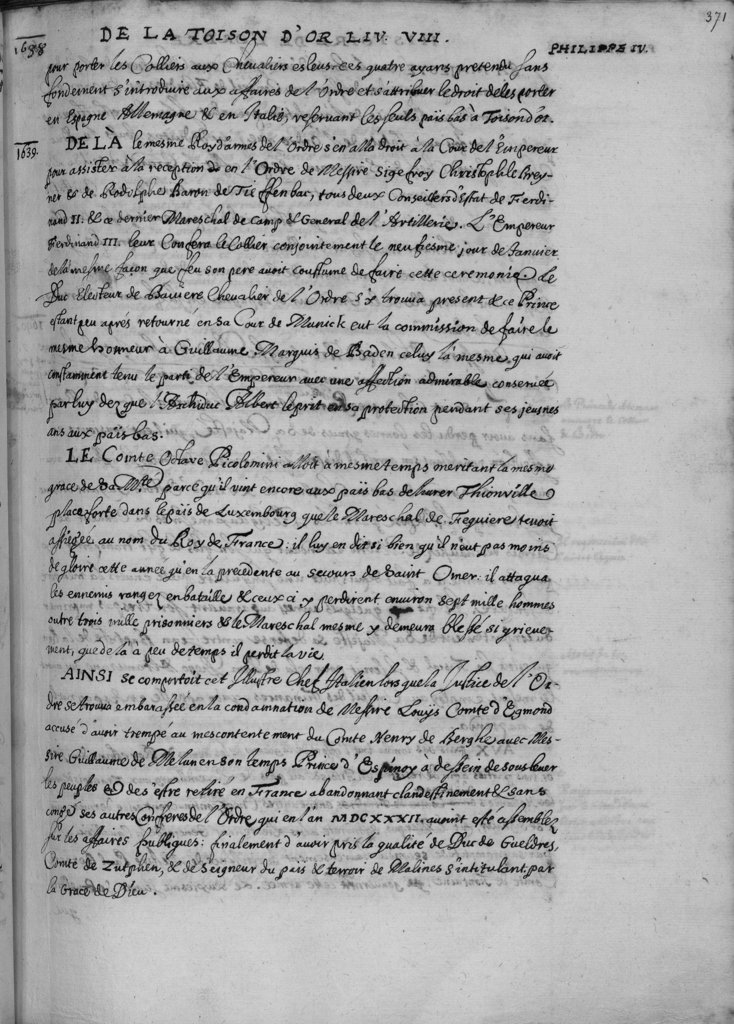 371
DE LA TOISON D'OR LIV. VIII.
PHILIPPE IV.
1638
pour porter les Colliers aux Chevaliers esleus. Ces quatre ayans pretendu sans
fondement s'introduire aux affaires de l'Ordre et s'attribuer le droit de les porter
en Espagne Allemagne & en Italie, reservant les seuls païs bas à Toison d'or.
1639.
DE LÀ le mesme Roy d'armes de l'Ordre s'en alla droit à la Cour de l'Empereur
pour assister à la reception en l'Ordre de Messire Sigefroy Christophle Brey-
ner & de Rodolphe Baron de Tieffenbac, tous deux Conseillers d'Estat de Ferdi-
nand II. & ce dernier Mareschal de Camp & General de l'Artillerie. L'Empereur
Ferdinand III. leur Confera le Collier conjointement le neufiesme jour de Janvier
de la mesme façon que feu son pere avoit coustume de faire cette ceremonie. Le
Duc Electeur de Baviere Chevalier de l'Ordre s'y trouva present & ce Prince
estant peu aprés retourné en sa Cour de Munick eut la commission de faire le
mesme honneur à Guillaume Marquis de Baden celuy là mesme qui avoit
constamment tenu le parti de l'Empereur avec une affection admirable conservée
par luy dez que l'Archiduc Albert le prit en sa protection pendant ses jeusnes
ans aux païs bas.
LE Comte Octave Picolomini alloit a mesme temps meritant la mesme
grace de Sa M.té parce qu'il vint encore aux païs bas delivrer Thionville
place forte dans le païs de Luxembourg que le Mareschal de Feguiere tenoit
assiegée au nom du Roy de France: il luy en dit si bien qu'il n'eut pas moins
de gloire cette année qu'en la precedente au secours de Saint Omer: il attaqua
les ennemis rangez en bataille & ceux ci y perdirent environ sept mille hommes
outre trois mille prisonniers & le Mareschal mesme y demeura blessé si grieve-
ment, que de là à peu de temps il perdit la vie.
AINSI se comportoit cet Illustre Chef Italien lors que la Justice de l'Or-
dre se trouva embarassée en la condamnation de Messire Louys Comte d'Egmond
accusé d'avoir trempé au mescontentement du Comte Henry de Berghe avec Mes-
sire Guillaume de Melun en son temps Prince d'Espinoy à dessein de souslever
les peuples & de s'estre retiré en France abandonnant clandestinement & sans
congé ses autres Conferes de l'Ordre qui en l'an MDCXXXII. avoint esté assemblez
sur les affaires publiques: finalement d'avoir pris la qualité de Duc de Gueldres,
Comte de Zutphen, & de Seigneur du païs & terroir de Malines s'intitulant par
la Grace de Dieu.